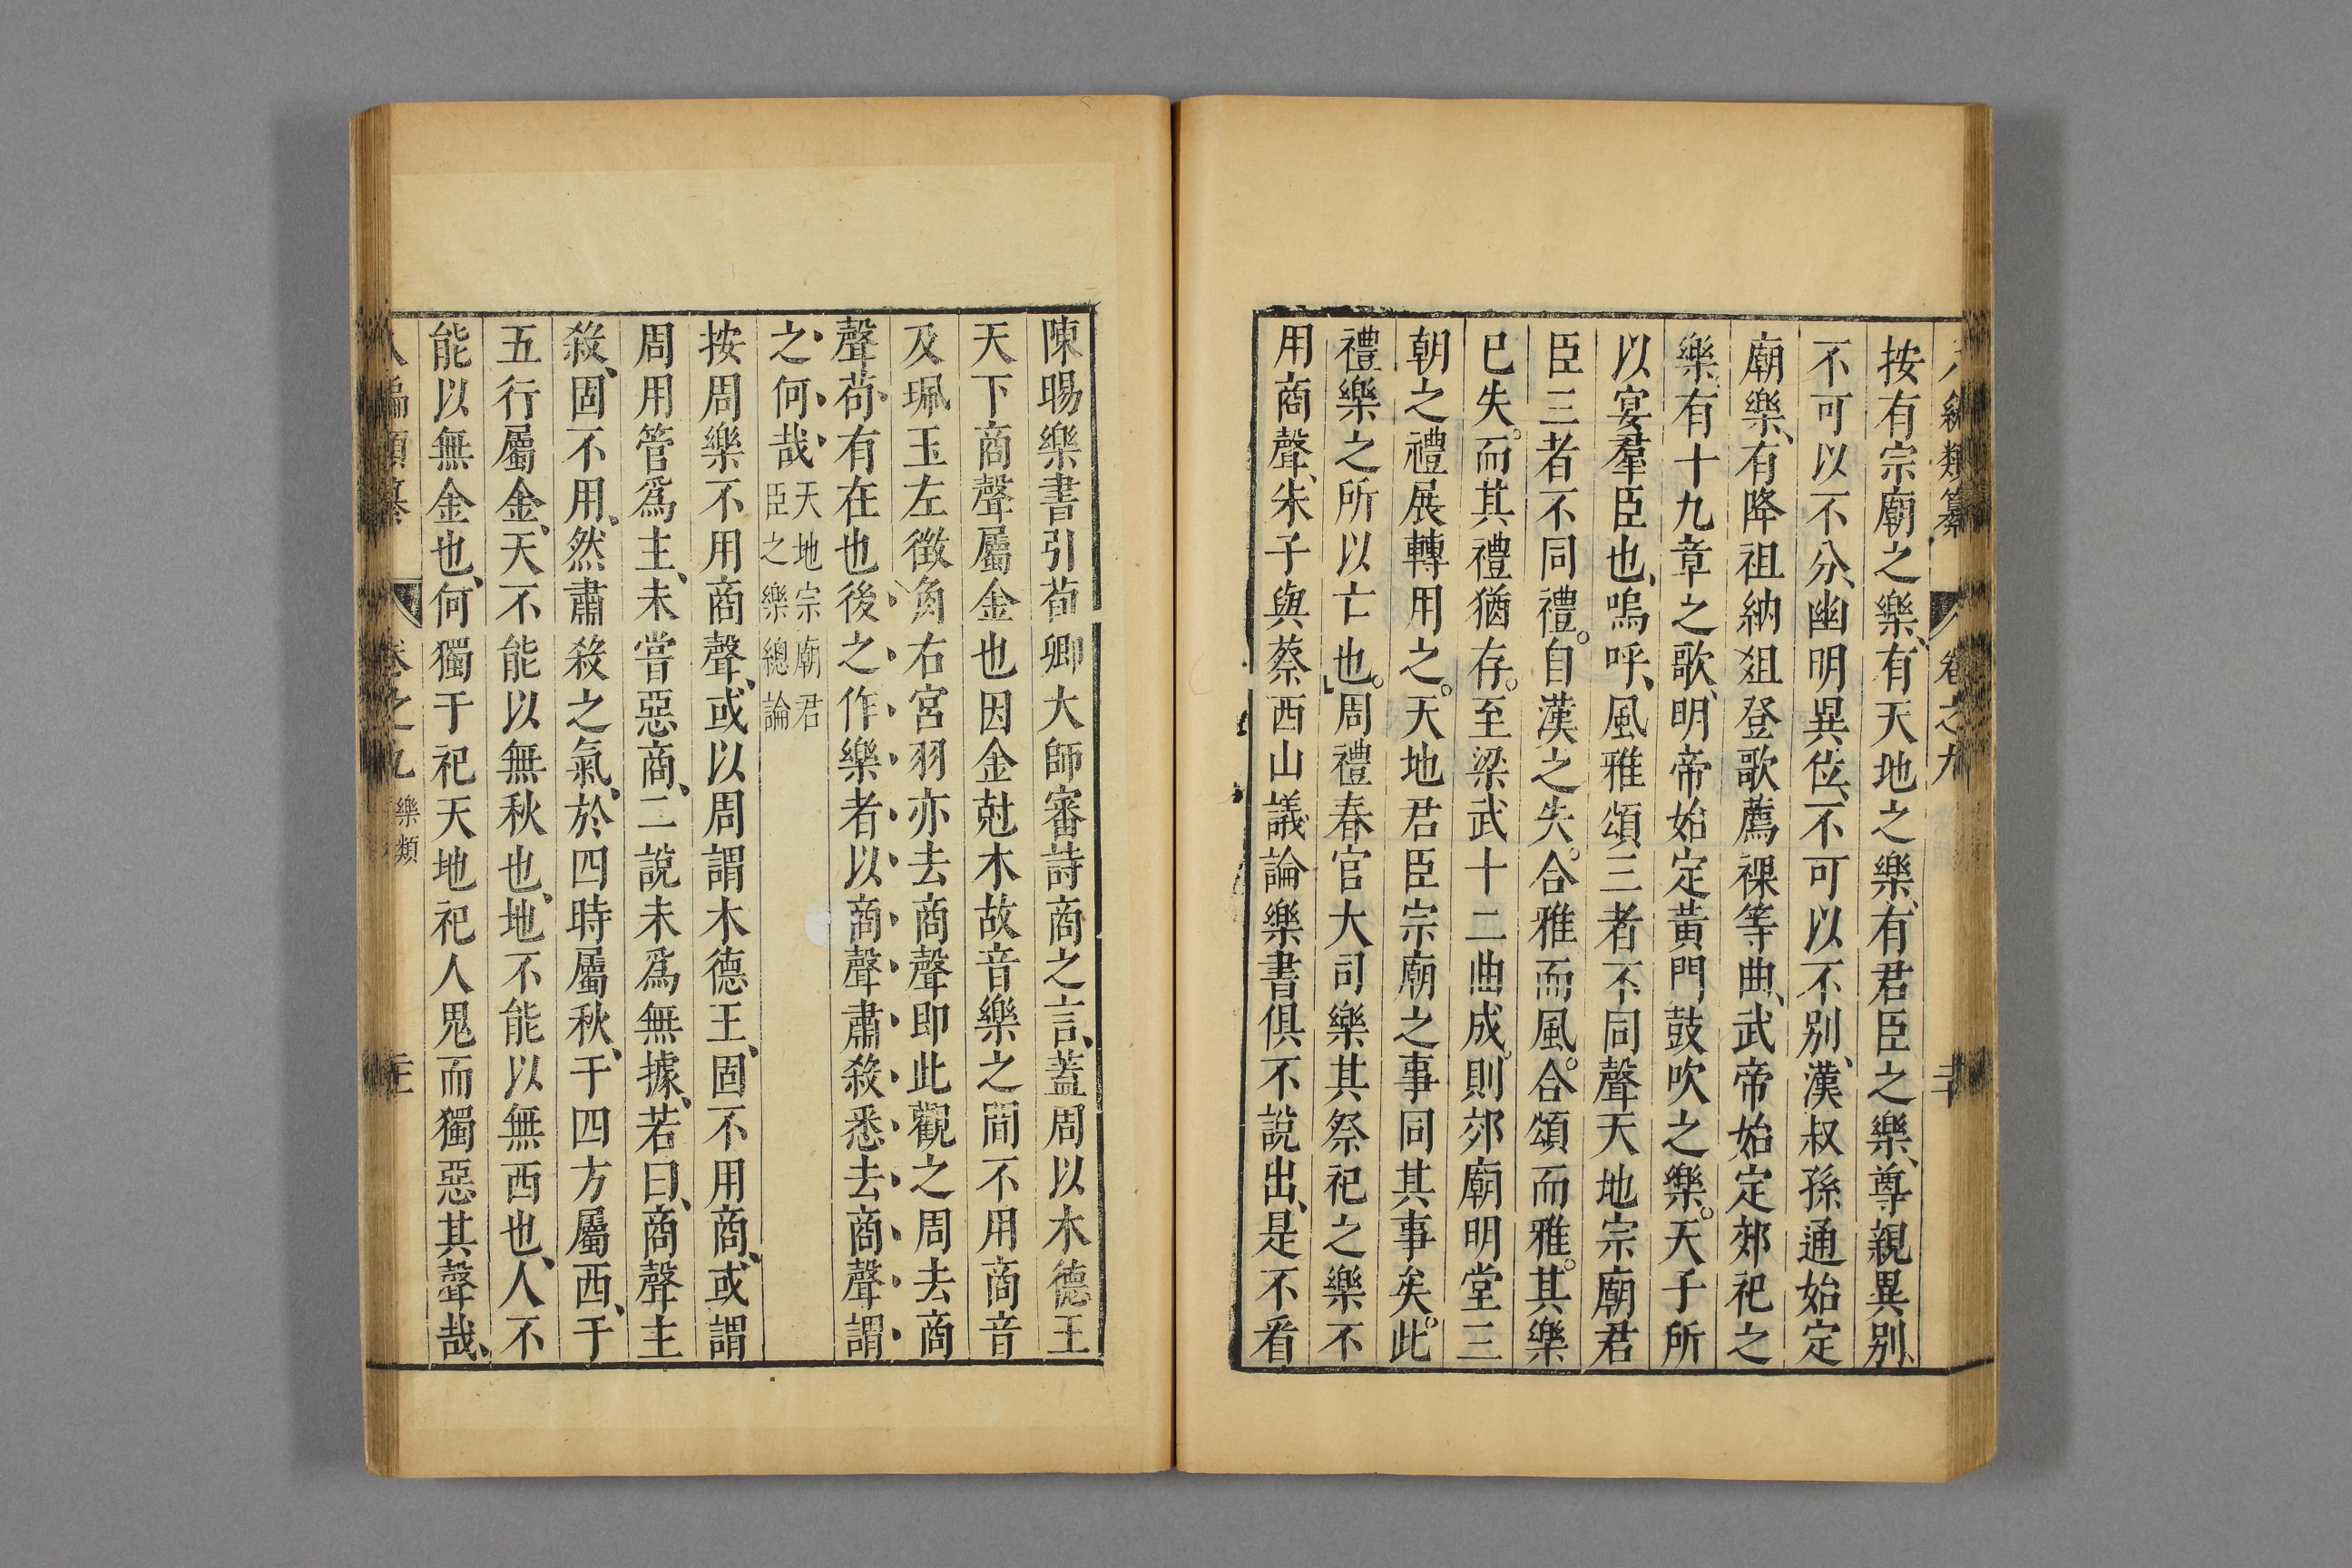 八編類纂 卷之九 二十
按有宗廟之樂、有天地之樂、有君臣之樂、尊親異別、
不可以不分、幽明異位、不可以不別、漢叔孫通始定
廟樂、有降祖納俎登歌薦祼等曲、武帝始定郊祀之
樂、有十九章之歌、明帝始定黃門鼓吹之樂。天子所
以宴羣臣也、嗚呼、風雅頌三者不同聲天地宗廟君
臣三者不同禮。自漢之失。合雅而風。合頌而雅。其樂
已失。而其禮猶存。至梁武十二曲成。則郊廟明堂三
朝之禮展轉用之。天地君臣宗廟之事同其事矣。此
禮樂之所以亡也。周禮春官大司樂其祭祀之樂不
用商聲、朱子與蔡西山議論樂書俱不說出、是不看
陳暘樂書引荀卿大師審詩商之言、蓋周以木德王
天下商聲屬金也因金尅木故音樂之間不用商音
及珮玉左徵角右宮羽亦去商聲即此觀之周去商
聲苟有在也後之作樂者以商聲肅殺悉去商聲謂
之何哉 天地宗廟君臣之樂總論
按周樂不用商聲、或以周謂木德王、固不用商、或謂
周用管爲主、未嘗惡商、二說未爲無據、若曰、商聲主
殺、固不用、然肅殺之氣、於四時屬秋、于四方屬西、于
五行屬金、天不能以無秋也、地不能以無西也、人不
能以無金也、何獨于祀天地祀人鬼而獨惡其聲哉、
八編類纂 卷之九 樂類